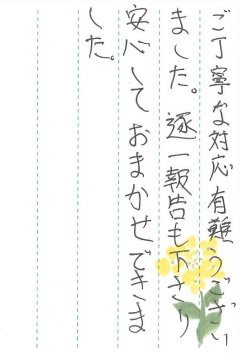 ご丁寧な対応有難うござい
ました。逐一報告も下さり
安心しておまかせできま
した。